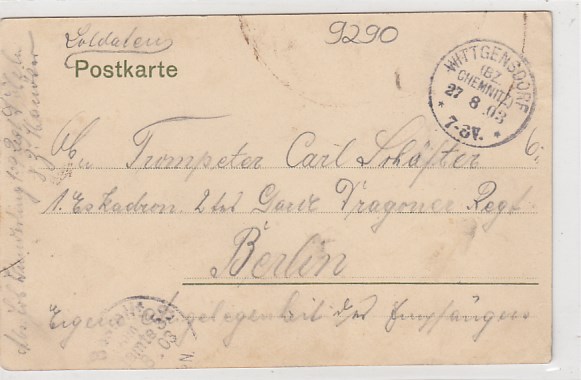 Soldaten
9290
Postkarte
WITTGENSDORF
(BZ. CHEMNITZ)
27 8 03
7-8V.
An Trompeter Carl Schäfter
1. Eskadron. 2tes Garde Dragoner Regt
Berlin
Eigene Angelegenheit des Empfängers